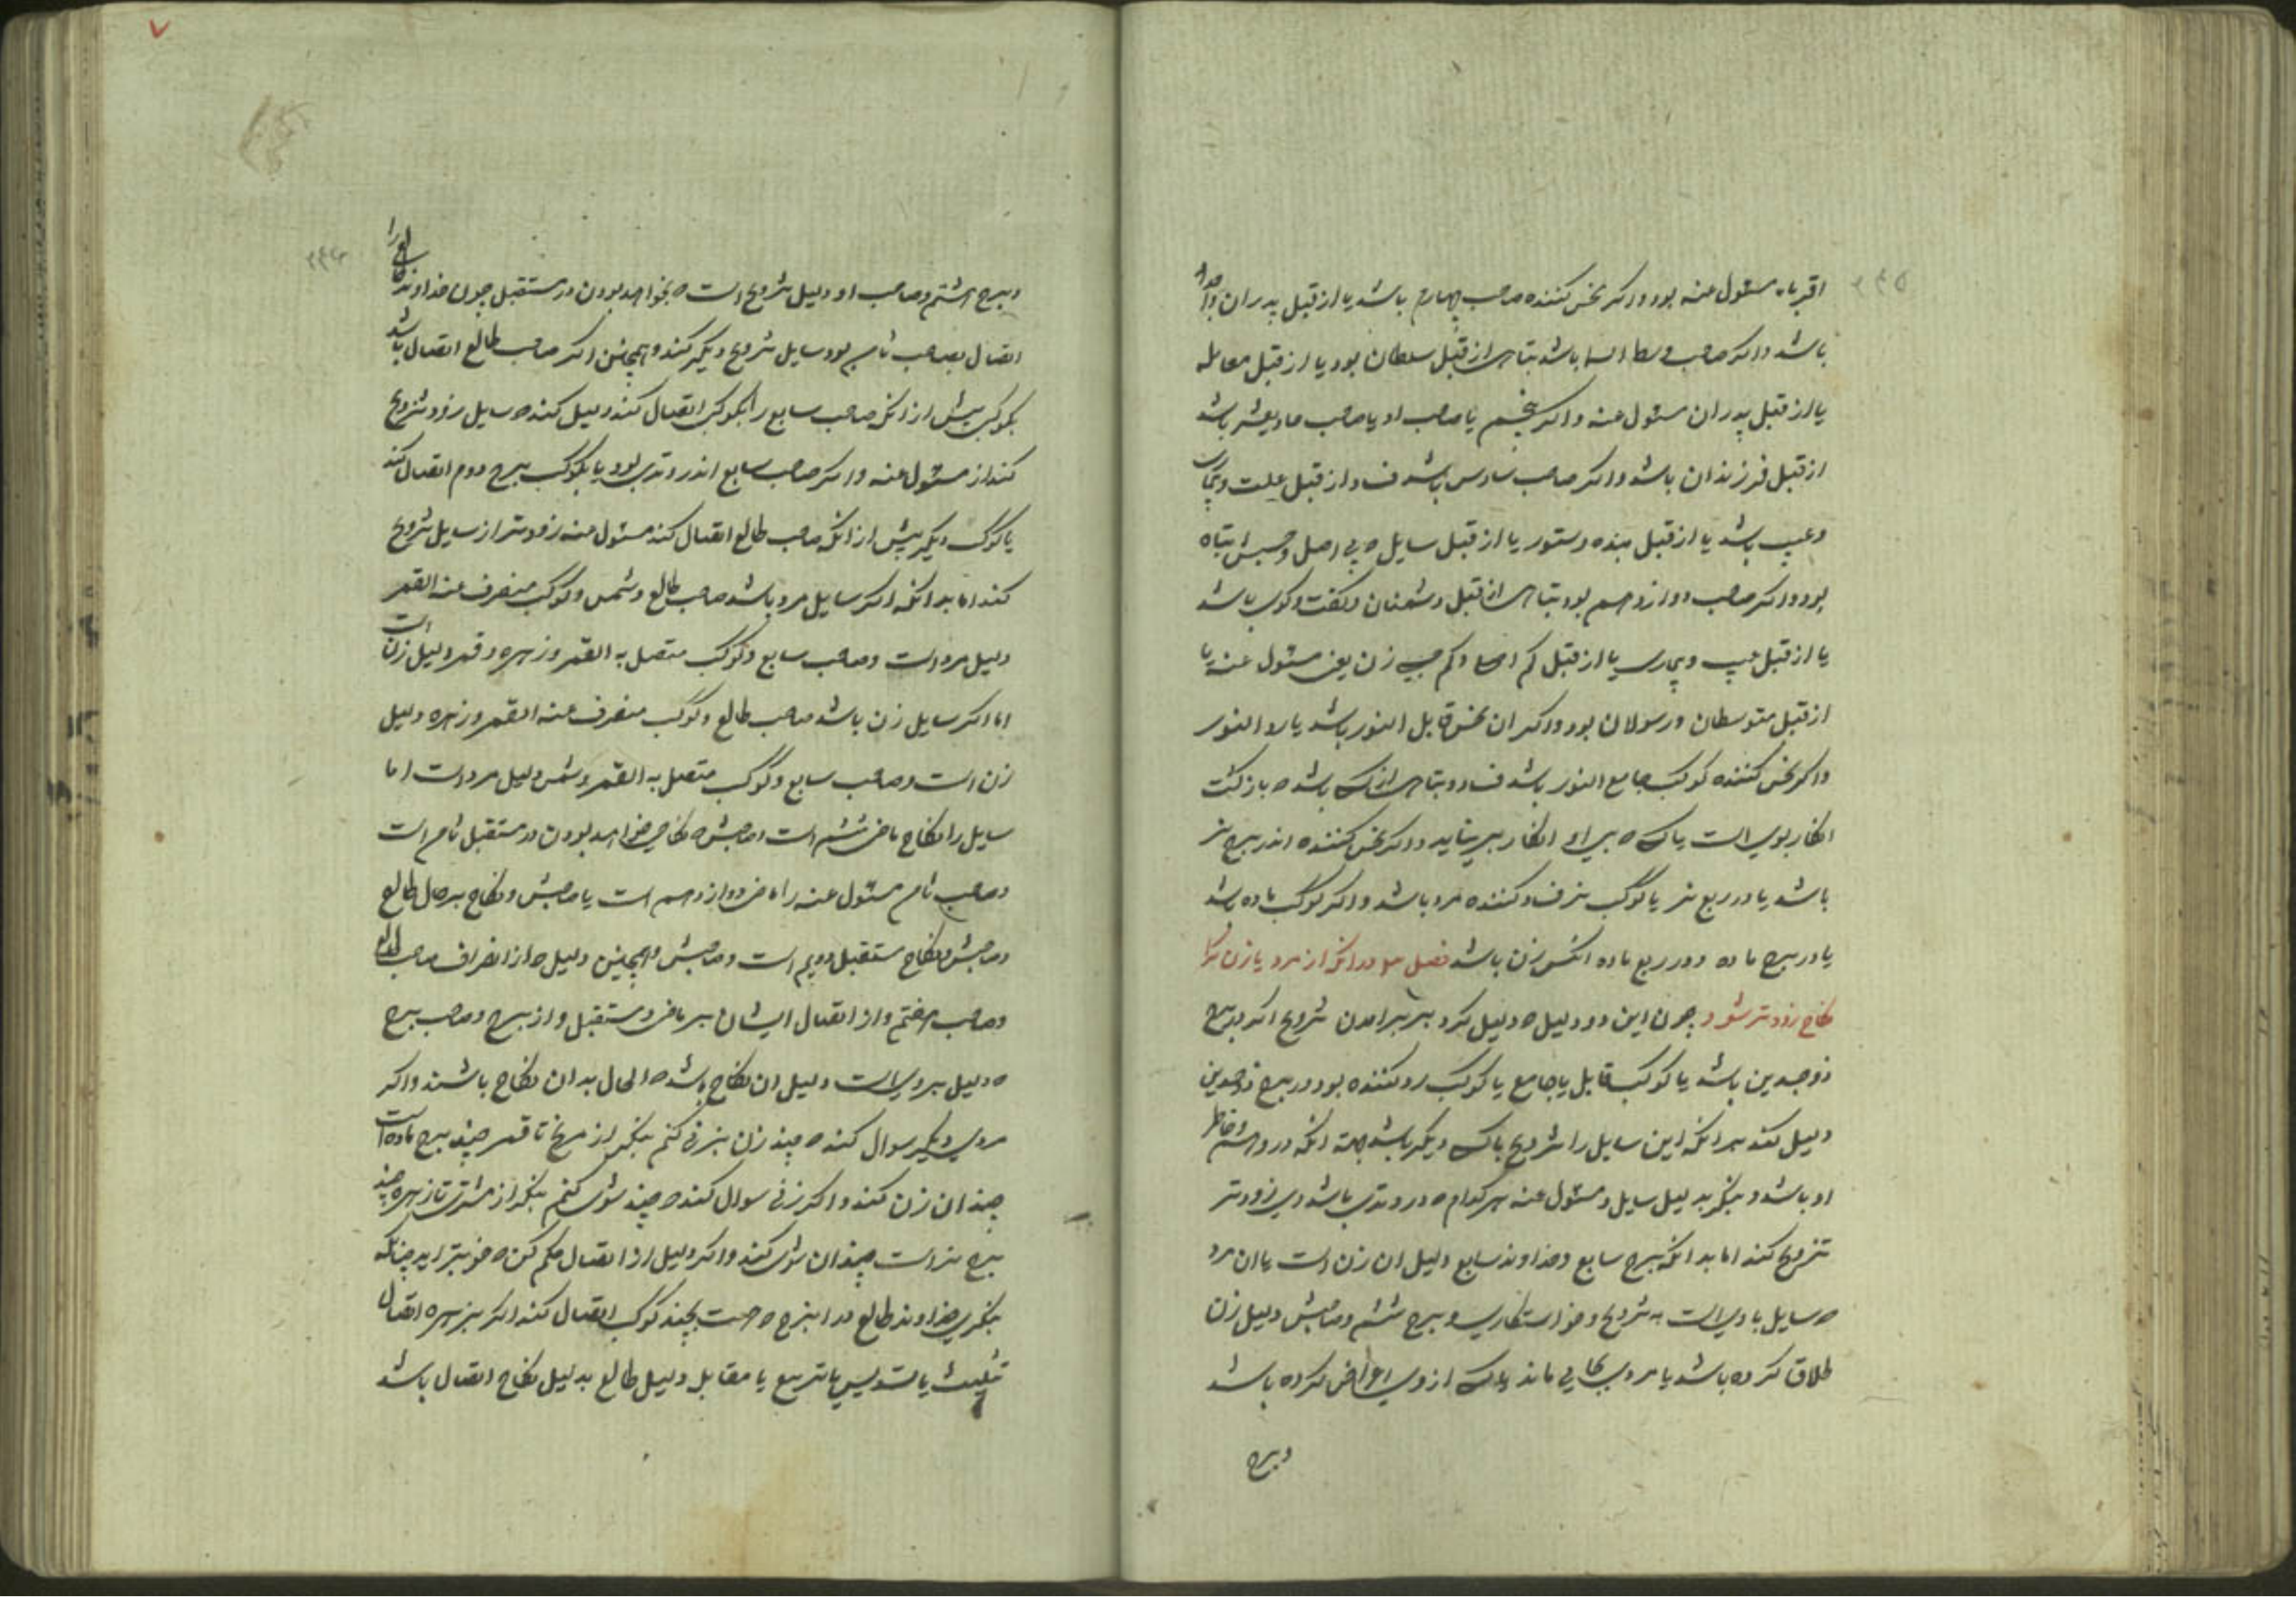 ۲۳۵
اقرباء مسئول عنه بود و اکر نحس کننده صاحب چهارم باشد یا از قبل پدران و اجداد
باشد و اکر صاحب وسط السما باشد تباهی از قبل سلطان بود یا از قبل معامله
یا از قبل پدران مسئول عنه و اکر پنجم یا صاحب او یا صاحب حادیعشر باشد
از قبل فرزندان باشد و اکر صاحب سادس باشد فساد از قبل علت و بیماری
و عیب باشد یا از قبل بنده و ستور یا از قبل سایل که بی اصل و جنسش تباه
بود و اکر صاحب دوازدهم بود تباهی از قبل دشمنان و کفت و کوی باشد
یا از قبل عیب و بیماری یا از قبل کم اصلی و کم زن یعنی مسئول عنه یا
از قبل متوسطان و رسولان بود و اکر ان نحس قابل النور باشد یا رد النور
و اکر نحس کننده کوکب جامع النور باشد فساد و تباهی از انکس باشد که بازکشت
انکار بوی است یا کسی که برای انکار می بیاید و اکر نحس کننده اندر برج نر
باشد یا در ربع نر یا کوکب نر فساد کننده مرد باشد و اکر کوکب ماده باشد
یا در برج ماده و در ربع ماده انکس زن باشد فصل در انکه از مرد یا زن کرا
نکاح زودتر شود چون این دو دلیل که دلیل کرد بر برامدن تزویج اکر در برج
ذوجسدین باشد یا کوکب قابل یا جامع یا کوکب رد کننده بود در برج ذوجسدین
دلیل کند بر انکه این سایل را تزویج با کسی دیکر باشد بجهة انکه در وهم و خاطر
او باشد و بنکر بدلیل سایل و مسئول عنه هر کدام که در وتدی باشد وی زودتر
تزویج کند اما بدانکه برج سابع و خداوند سابع دلیل ان زن است یا ان مرد
که سایل با وی است به تزویج و خواستکاری و برج ششم و صاحبش دلیل زن
طلاق کرده باشد یا مردی بجایی ماند یا کسی از وی اعراض کرده باشد
و برج
۲۳۶
و برج هشتم و صاحب او دلیل تزویج است که بخواهد بودن در مستقبل چون خداوند طالع را
اتصال بصاحب ثامن بود سایل تزویج دیکر کند و همچنین اکر صاحب طالع اتصال باشد
بکوکبی پیش از انکه صاحب سابع را بکوکبی اتصال کند دلیل کند که سایل زود تزویج
کند از مسئول عنه و اکر صاحب سابع اندر وتدی بود یا بکوکب برج دوم اتصال کند
یا کوکب دیکر پیش از انکه صاحب طالع اتصال کند مسئول عنه زودتر از سایل تزویج
کند اما بدانکه اکر سایل مرد باشد صاحب طالع و شمس و کوکب منصرف عنه القمر
دلیل مرد است و صاحب سابع و کوکب متصل به القمر و زهره و قمر دلیل زن است
اما اکر سایل زن باشد صاحب طالع و کوکب منصرف عنه القمر و زهره دلیل
زن است و صاحب سابع و کوکب متصل به القمر و شمس دلیل مرد است اما
سایل را نکاح ماضی ششم است و صاحبش که نکاحی خواهد بودن در مستقبل ثامن است
و صاحب ثامن مسئول عنه را ماضی دوازدهم است یا صاحبش و نکاح بر حال طالع
و صاحبش و نکاح مستقبل دویم است و صاحبش و همچنین دلیل که از انصراف صاحب الطالع
و صاحب هفتم و از اتصال ایشان بر ماضی و مستقبل و از برج و صاحب برج
که دلیل بر وی است دلیل ان نکاح باشد که الحال بدان نکاح باشند و اکر
مردی دیکر سوال کند که چند زن بزنی کنم بنکر از مریخ تا قمر چند برج ماده است
چندان زن کند و اکر زنی سوال کند که چند شوی کنم بنکر از مشتری تا زهره چند
برج نر است چندان شوی کند و اکر دلیل از اتصال حکم کن که خوبتر اید چنانکه
بنکری خداوند طالع در ان برج که هست بچند کوکب اتصال کند اکر بزهره اتصال
تثلیث یا تسدیس یا تربیع یا مقابل دلیل طالع بدلیل نکاح اتصال باشد